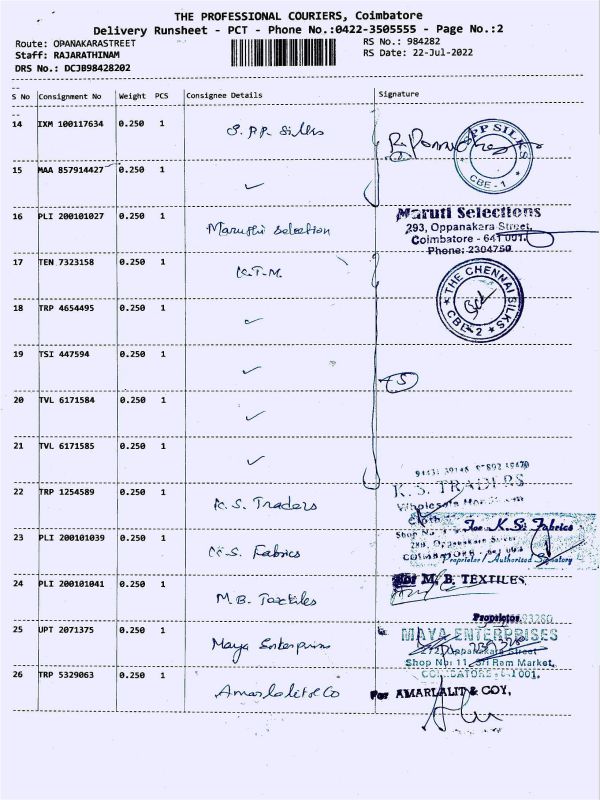 THE PROFESSIONAL COURIERS, Coimbatore
Delivery Runsheet - PCT - Phone No.:0422-3505555 - Page No.:2
Route: OPANAKARASTREET
RS No.: 984282
Staff: RAJARATHINAM
RS Date: 22-Jul-2022
DRS No.: DCJB98428202
S No Consignment No Weight PCS Consignee Details Signature
14 IXM 100117634 0.250 1 S.PP. Silks
SPP SILKS
CBE-1
15 MAA 857914427 0.250 1 ✓
16 PLI 200101027 0.250 1 Maruthi Selection
Maruti Selections
293, Oppanakara Street,
Coimbatore - 641 001.
Phone: 2304750
17 TEN 7323158 0.250 1 K.T.M.
THE CHENNAI SILKS
CBE-2
18 TRP 4654495 0.250 1 ✓
19 TSI 447594 0.250 1 ✓
20 TVL 6171584 0.250 1 ✓
21 TVL 6171585 0.250 1 ✓
22 TRP 1254589 0.250 1 K.S. Traders
K.S. TRADERS
23 PLI 200101039 0.250 1 K.S. Fabrics
For K.S. Fabrics
Proprietor / Authorised Signatory
24 PLI 200101041 0.250 1 M.B. Textiles
For M. B. TEXTILES,
Proprietor
25 UPT 2071375 0.250 1 Maya Enterprises
MAYA ENTERPRISES
Oppanakara Street
Shop No: 11, Sri Ram Market,
26 TRP 5329063 0.250 1 Amarlalit & Co
For AMARLALIT & COY,